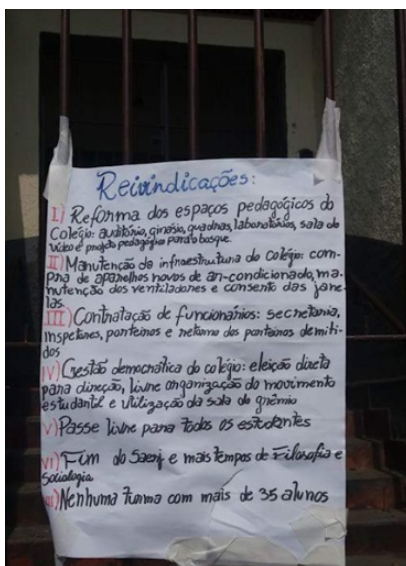 Reivindicações:
I) Reforma dos espaços pedagógicos do
Colégio: auditório, ginásio, quadras, laboratórios, sala de
vídeo e projeto pedagógico para o bosque.
II) Manutenção da infraestrutura do colégio: com-
pra de aparelhos novos de ar-condicionado, ma-
nutenção dos ventiladores e conserto das jane-
las.
III) Contratação de funcionários: secretaria,
inspetores, porteiros e retorno dos porteiros demiti-
dos
IV) Gestão democrática do colégio: eleição direta
para direção, livre organização do movimento
estudantil e utilização da sala do grêmio
V) Passe livre para todos os estudantes
VI) Fim do Saerj e mais tempos de Filosofia e
Sociologia
VII) Nenhuma turma com mais de 35 alunos